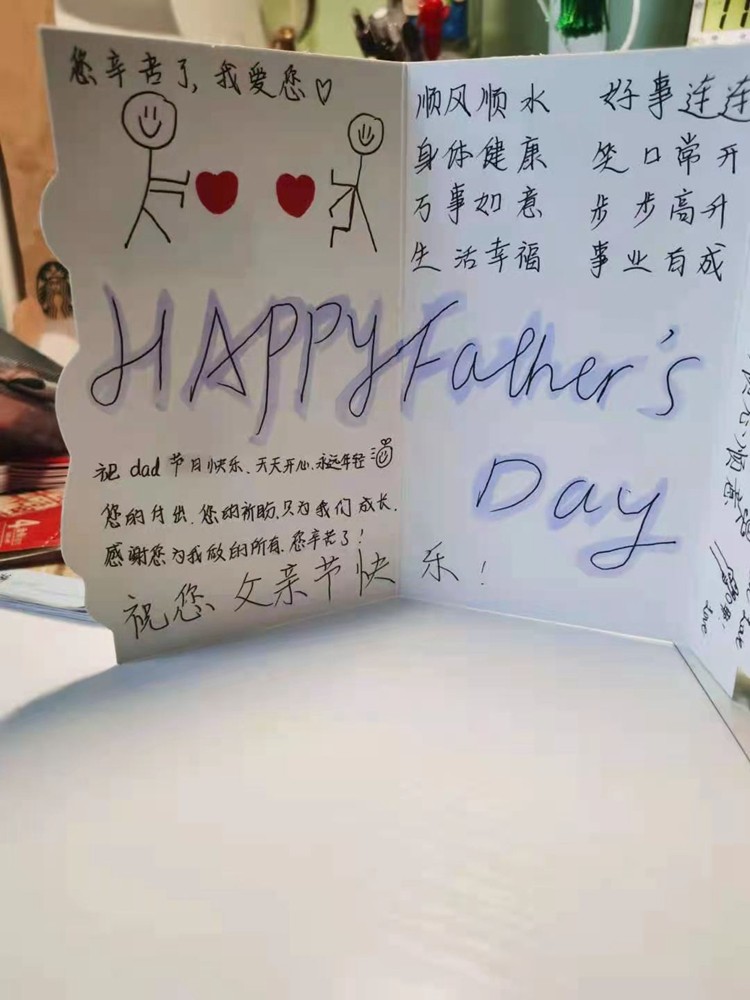 您辛苦了，我爱您♡
顺风顺水 好事连连
身体健康 笑口常开
万事如意 步步高升
生活幸福 事业有成
HAPPY Father's
Day
祝 dad 节日快乐、天天开心、永远年轻
您的付出、您的祈盼、只为我们成长、
感谢您为我做的所有、您辛苦了！
祝您父亲节快乐！
顺意
Love